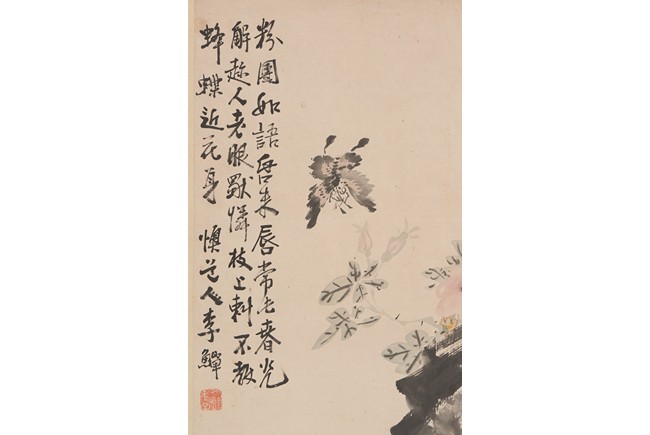 粉團如語啓朱唇常春光
解趁人老眼憐枝上刺不教
蜂蝶近花身 懊道人李鱓